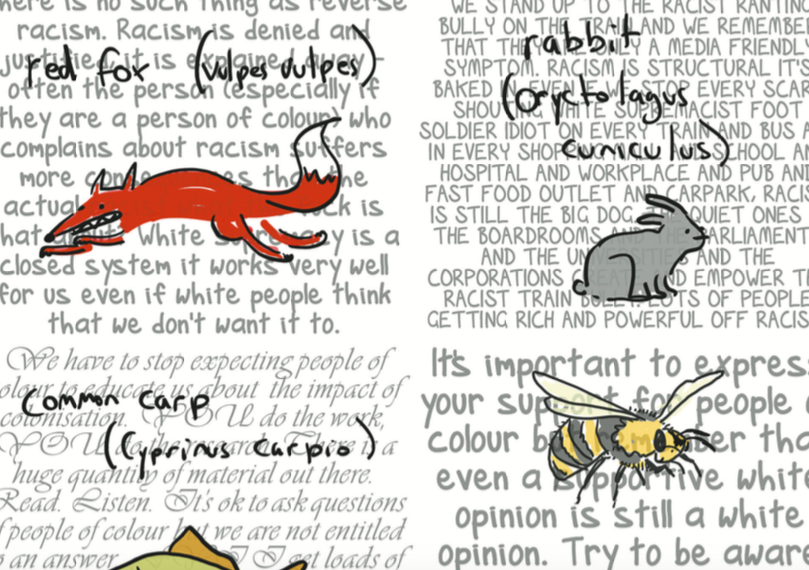 here is no such thing as reverse
racism. Racism is denied and
justified, it is explained away -
often the person (especially if
they are a person of colour) who
complains about racism suffers
more
is
White Supremacy is a
closed system it works very well
for us even if white people think
that we don't want it to.
red fox (vulpes vulpes)
WE STAND UP TO THE RACIST RANTING
BULLY ON THE TRAIN AND WE REMEMBE
THAT THE ONLY A MEDIA FRIENDL
SYMPTOM. RACISM IS STRUCTURAL IT'S
BAKED STOP EVERY SCAR
SHOU WHITE SUPREMACIST FOOT
SOLDIER IDIOT ON EVERY TRAIN AND BUS A
IN EVERY SHOP SCHOOL AN
HOSPITAL AND WORKPLACE AND PUB AND
FAST FOOD OUTLET AND CARPARK, RACI
IS STILL THE BIG DOG QUIET ONES
THE BOARDROOMS PARLIAMENT
AND THE AND THE
CORPORATIONS EMPOWER TH
RACIST TRAIN LOTS OF PEOPLE
GETTING RICH AND POWERFUL OFF RACIS
rabbit
(oryctolagus
cuniculus)
We have to stop expecting people of
colour to educate us about the impact of
colonisation. YOU do the work,
YOU There is a
huge quantity of material out there.
Read. Listen. It's ok to ask questions
f people of colour but we are not entitled
o an answer. I get loads of
common carp
(Cyprinus carpio)
It's important to express
your support for people o
colour remember tha
even a supportive white
opinion is still a white
opinion. Try to be aware